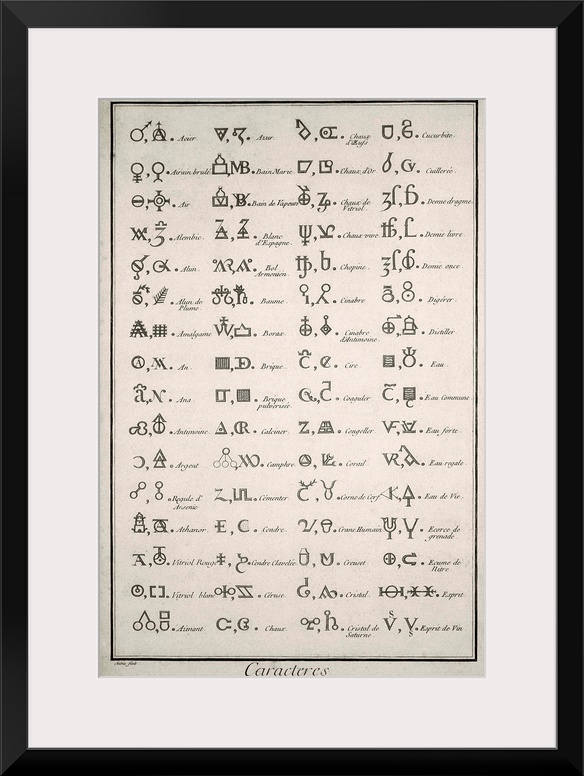 Acier. Azur. Chaux d'Œufs. Cucurbite.
Airain brulé. Bain Marie. Chaux d'Or. Cuillerée.
Air. Bain de Vapeurs. Chaux de Vitriol. Demie dragme.
Alembic. Blanc d'Espagne. Chaux vive. Demie livre.
Alun. Bol Armenien. Chopine. Demie once.
Alun de Plume. Baume. Cinabre. Digérer.
Amalgame. Borax. Cinabre d'Antimoine. Distiller.
An. Brique. Cire. Eau.
Ana. Brique pulverisée. Coaguler. Eau Commune.
Antimoine. Calciner. Congeller. Eau forte.
Argent. Camphre. Corail. Eau regale.
Regule d'Arsenic. Cémenter. Corne de Cerf. Eau de Vie.
Athanor. Cendre. Crane Humain. Ecorce de grenade.
Vitriol Rouge. Cendre Clavelée. Creuset. Ecume de Nitre.
Vitriol blanc. Céruse. Cristal. Esprit.
Aimant. Chaux. Cristal de Saturne. Esprit de Vin.
Caracteres